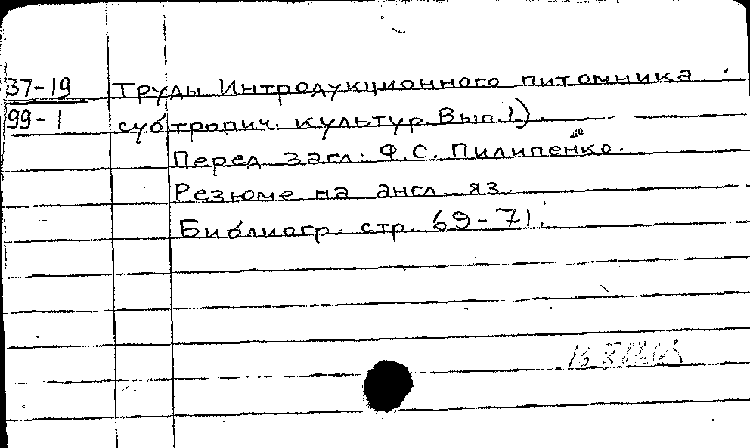 37-19 Труды Интродукционного питомника
99-1 субтропич. культур. Вып. 1)
Перед загл: Ф.С. Пилипенко.
Резюме на англ яз.
Библиогр. стр. 69-71.